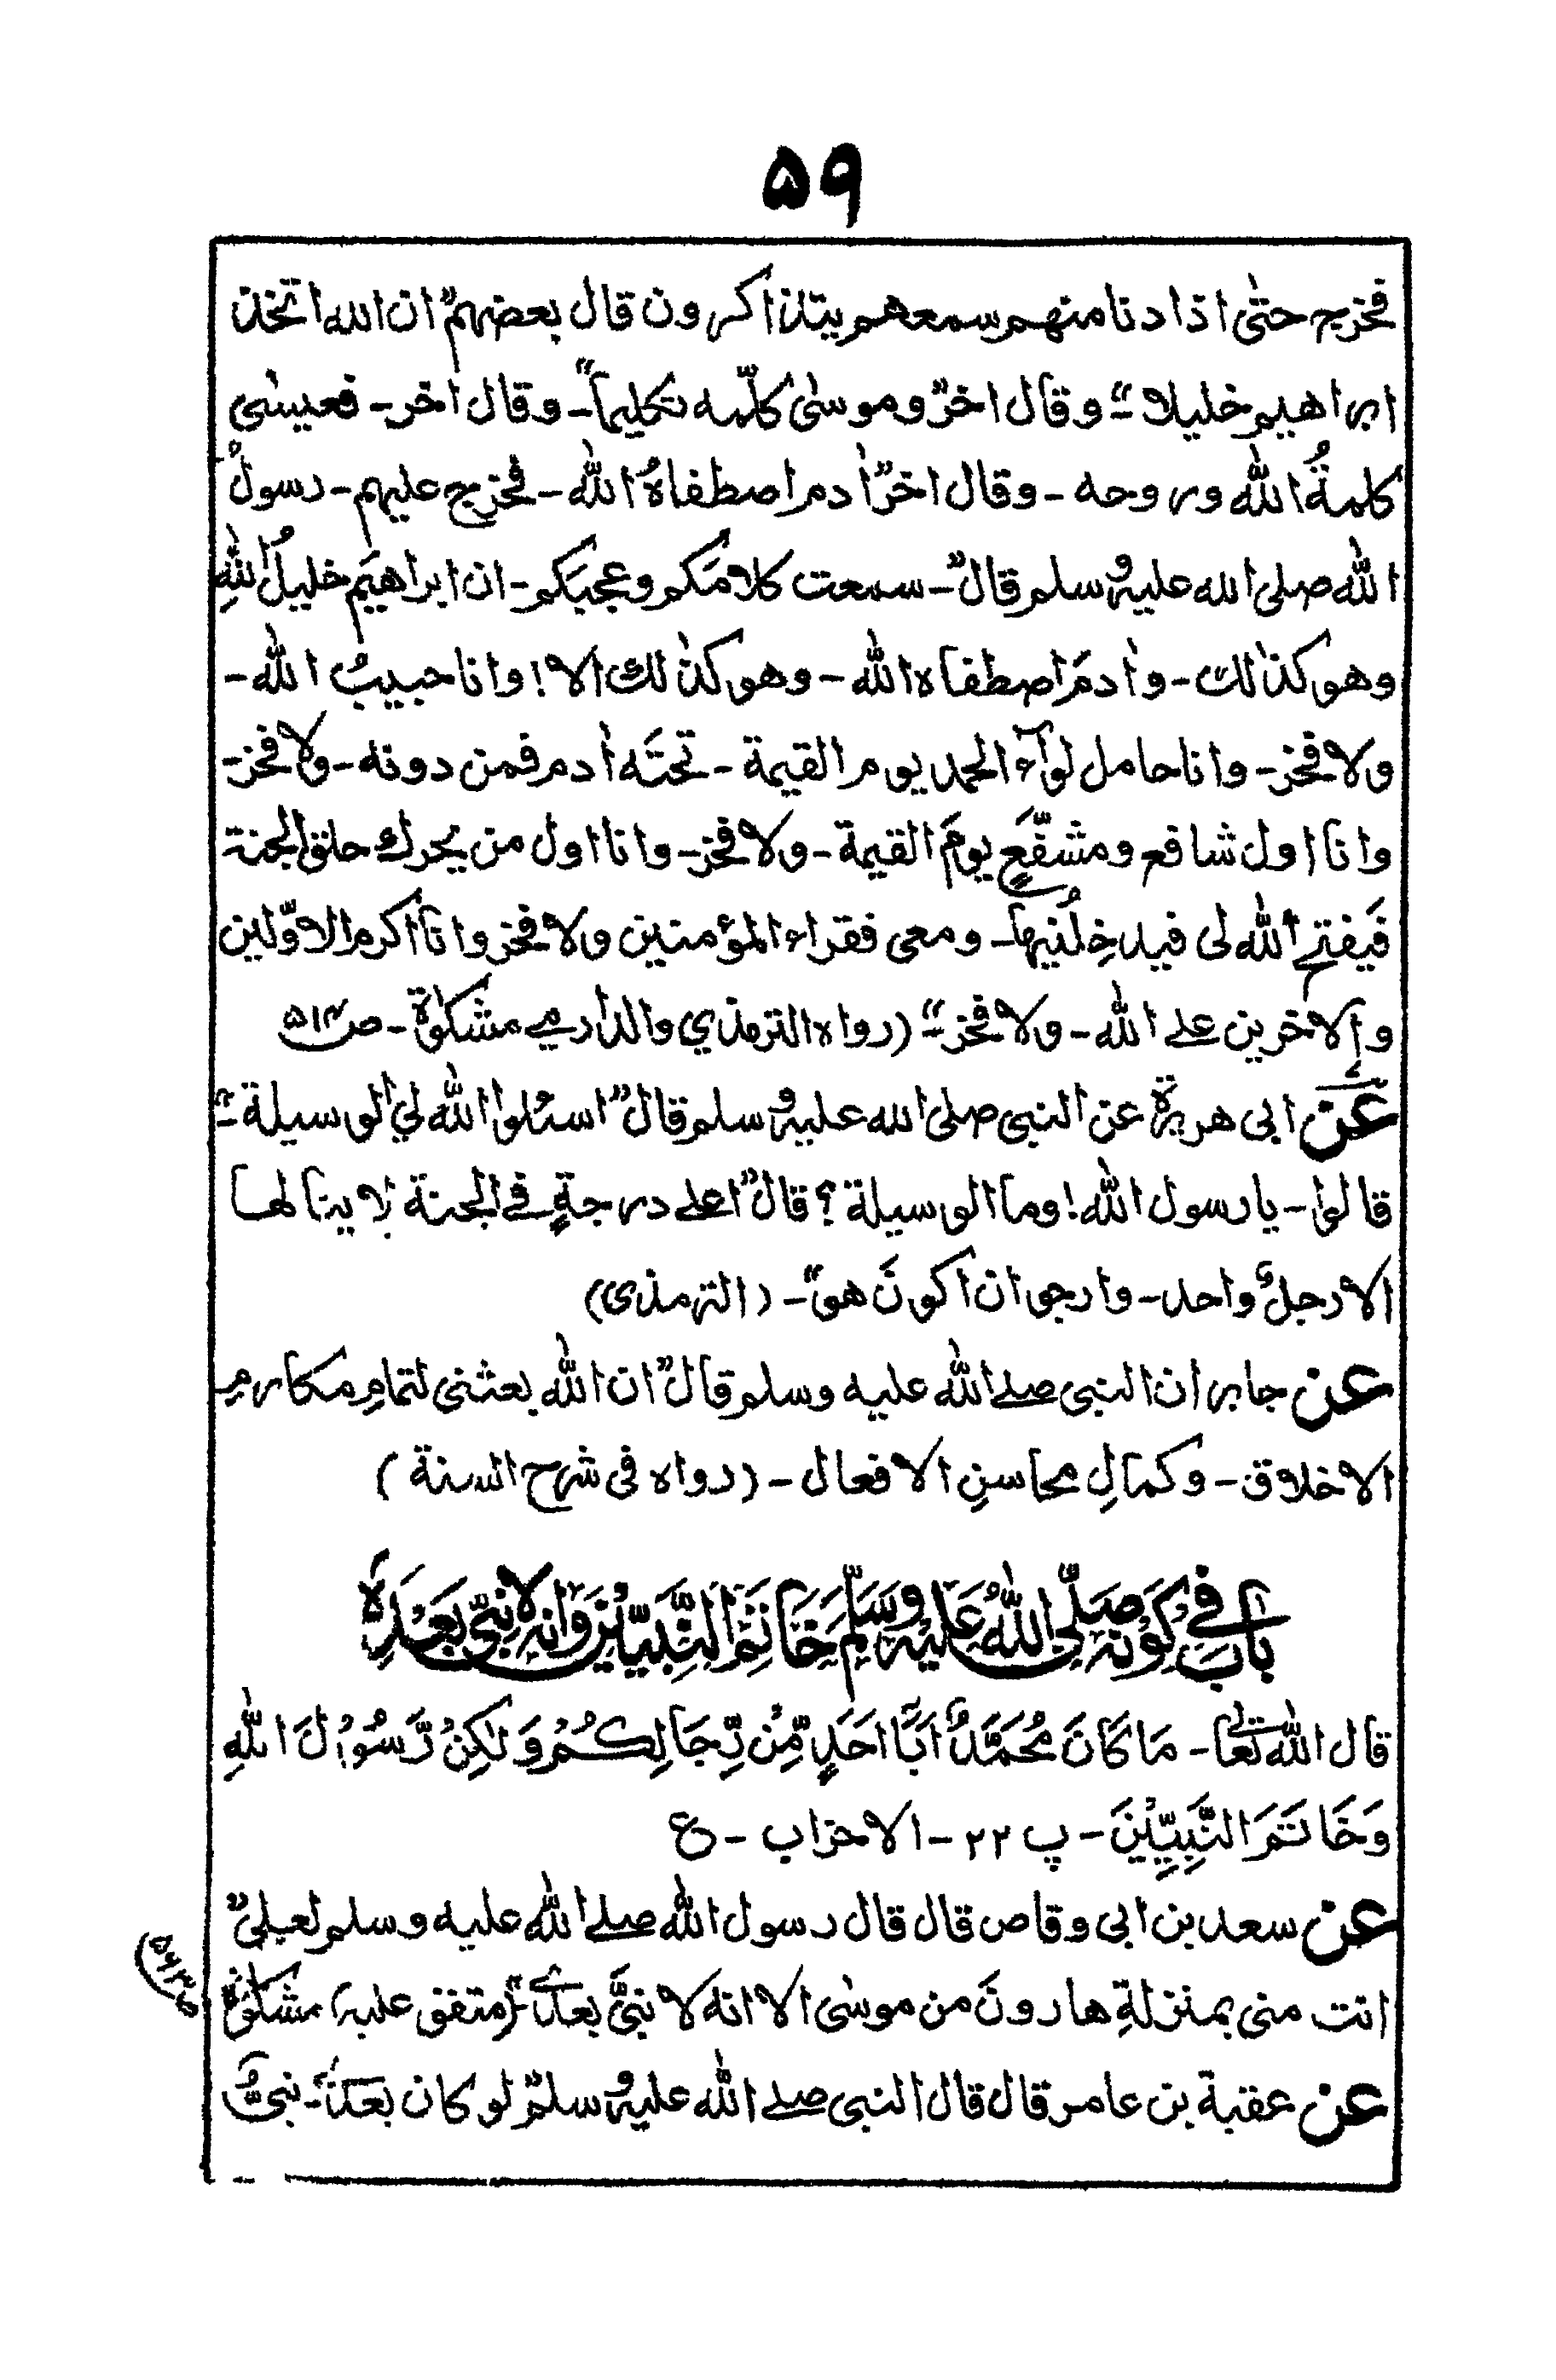 ۵۹
فخرج حتىٰ اذا دنا منهم سمعهم يتذاكرون قال بعضهم "ان الله اتخذ
ابراهيم خليلا"- وقال اخر "وموسىٰ كلّمه تكليما"- وقال اخر- فعيسٰى
كلمةُ الله وروحه- وقال اخر "اٰدم اصطفاهُ الله- فخرج عليهم- رسولُ
الله صلى الله عليه وسلم قال"- سمعت كلامَكم وعجبَكم- ان ابراهيمَ خليلُ اللهِ
وهو كذٰلك- واٰدمَ اصطفاه الله- وهو كذٰلك الا! وانا حبيبُ الله-
ولا فخر- وانا حامل لوآء الحمد يوم القيمة- تحتَه اٰدم فمن دونه- ولا فخر-
وانا اول شافع ومشفَّعٍ يومَ القيمة- ولا فخر- وانا اول من يحرك حلق الجنة
فَيفتح الله لى فيدخِلُنيها- ومعى فقراء المؤمنين ولا فخر وانا اكرم الاوّلين
والاخرين على الله- ولا فخر"- (رواه الترمذي والدارمي مشكوٰة- ص۵۱۳
عن ابى هريرة عن النبى صلى الله عليه وسلم قال "اسئلوا الله لي الوسيلة"-
قالوا- يا رسول الله! وما الوسيلة؟ قال "اعلى درجةٍ في الجنة لا ينالها
الا رجلٌ واحد- وارجو ان اكونَ هو"- (الترمذى)
عن جابر ان النبى صلى الله عليه وسلم قال "ان الله بعثنى لتمامِ مكارم
الاخلاق- وكمالِ محاسنِ الافعال- (رواه فى شرح السنة)
بابٌ فِي كَوْنِهٖ صَلَّى اللهُ عَلَيْهِ وَسَلَّمَ خَاتَمَ النَّبِيِّيْنَ وَانَّهٗ لَا نَبِيَّ بَعْدَهٗ
قال الله تعالىٰ- مَا كَانَ مُحَمَّدٌ اَبَآ اَحَدٍ مِّنْ رِّجَالِكُمْ وَلٰكِنْ رَّسُوْلَ اللهِ
وَخَاتَمَ النَّبِيِّيْنَ- پ ۲۲- الاحزاب- ع
عن سعد بن ابى وقاص قال قال رسول الله صلى الله عليه وسلم لعلى "
انت منى بمنزلةِ هارونَ من موسىٰ الا انه لا نبىَّ بعدى"- (متفق عليه) مشكوٰة
ص۵۶۳
عن عقبة بن عامر قال قال النبى صلى الله عليه وسلم "لو كان بعدى- نبىٌّ